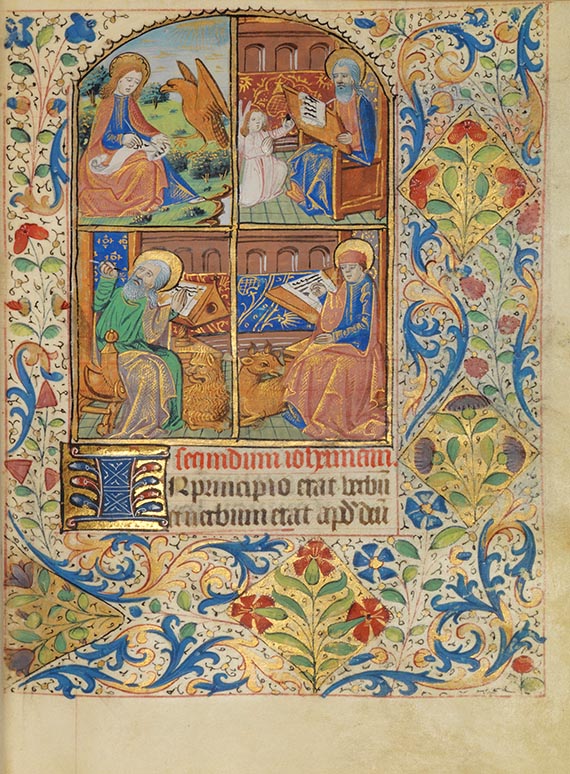 secundum iohannem.
IN principio erat verbū
et verbum erat apd̄ deū